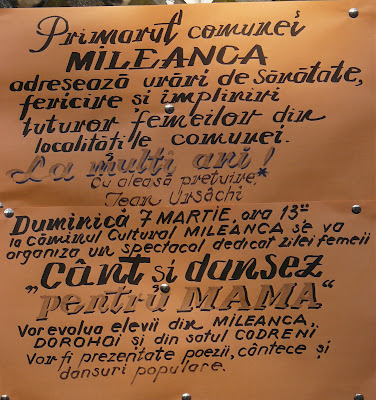 Primarul comunei
MILEANCA
adresează urări de sănătate,
fericire și împliniri
tuturor femeilor din
localitățile comunei.
La mulți ani!
Cu aleasă prețuire,*
Jean Ursachi
Duminică 7 MARTIE, ora 13⁰⁰
la Căminul Cultural MILEANCA se va
organiza un spectacol dedicat zilei femeii
„Cânt și dansez
pentru MAMA“
Vor evolua elevii din MILEANCA,
DOROHOI și din satul CODRENI
Vor fi prezentate poezii, cântece și
dansuri populare.